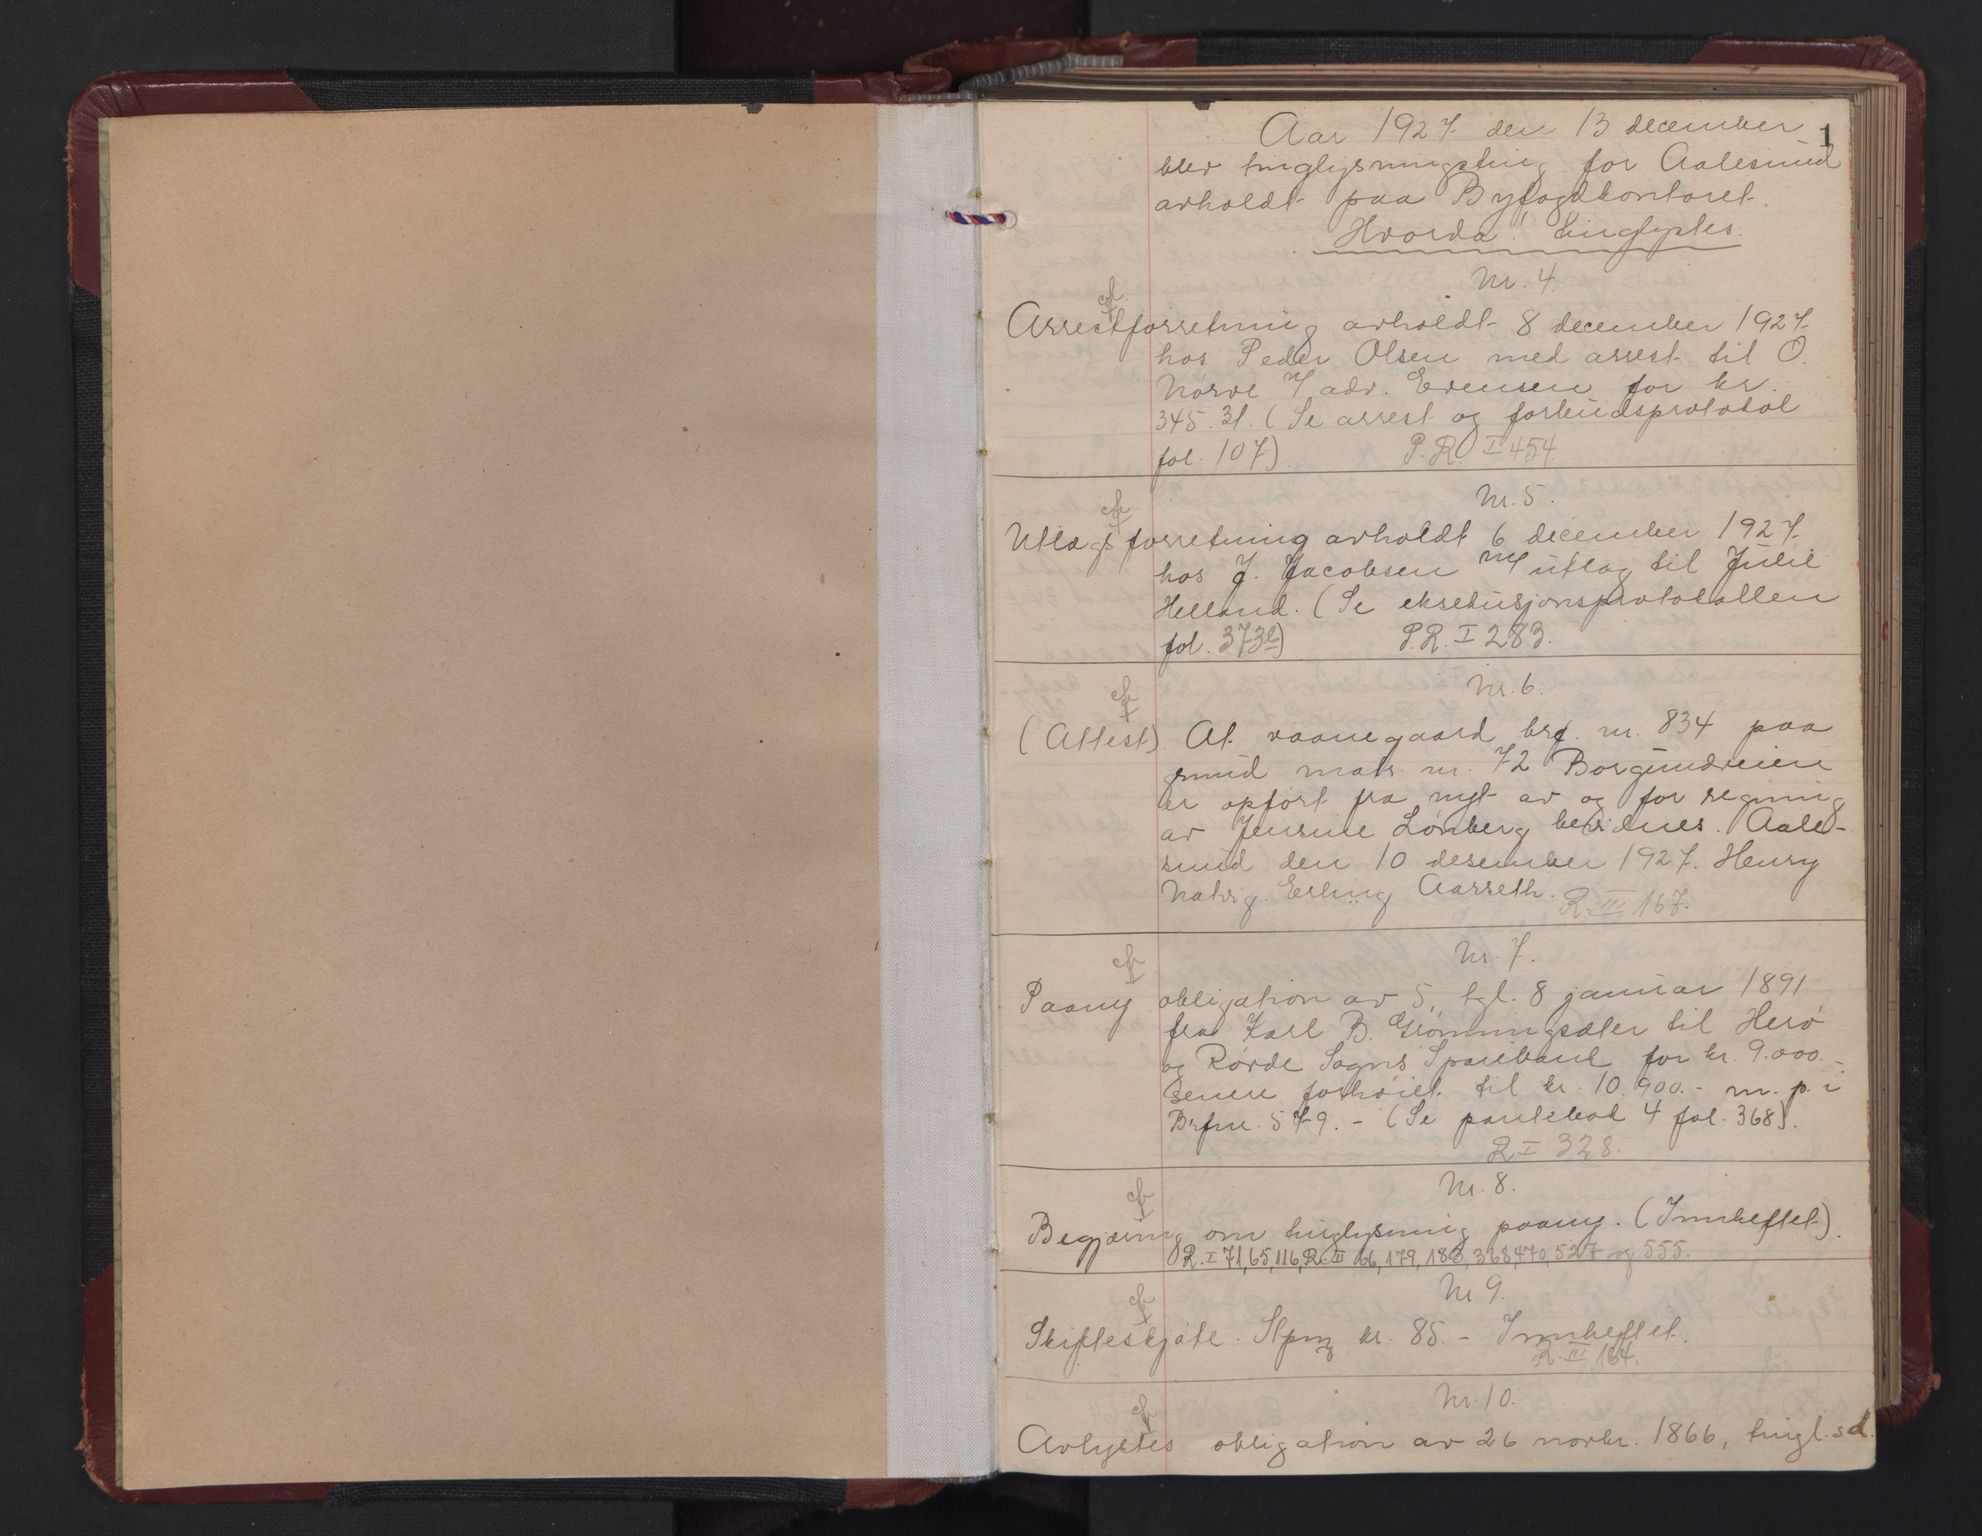 1
Aar 1927 den 13 december
blev tinglysningsting for Aalesund
avholdt paa Byfogdkontoret.
Hvorda! tinglystes:
Nr. 4.
Arrestforretning avholdt 8 december 1927
hos Peder Olsen med arrest til O.
Nørve v/ adv. Evensen for kr.
345.31. (Se arrest og forbudsprotokol
fol. 107) P.R. I 454.
Nr. 5.
Utlægsforretning avholdt 6 december 1927
hos J. Jacobsen m/ utlæg til Julie
Helland. (Se eksekusjonsprotokollen
fol. 373b) P.R. I 283.
Nr. 6.
(Attest). At vaanegaard brf. nr. 834 paa
grund matr. nr. 72 Borgundveien
er opført fra nyt av og for regning
av Jensine Lønberg bevidnes. Aale-
sund den 10 desember 1927. Henry
Natvig. Erling Aarseth. R. III 167.
Nr. 7.
Paany obligation av 5, tgl. 8 januar 1891
fra Karl B. Grønningsæter til Herø
og Røvde Sogns Sparebank for kr. 9.000.-
senere forhøiet til kr. 10.900.- m. p. i
Brfnr. 579. - (Se pantebok 4 fol. 368).
R I 328.
Nr. 8.
Begjæring om tinglysning paany. (Innheftet).
R. I 71, 65, 116, R. II 66, 179, 183, 368, 470, 527 og 555.
Nr 9.
Skifteskjøte. Stpm kr. 85.- Innheftet.
R. III 164.
Nr. 10.
Avlystes obligation av 26 novbr. 1866, tingl. s.d.